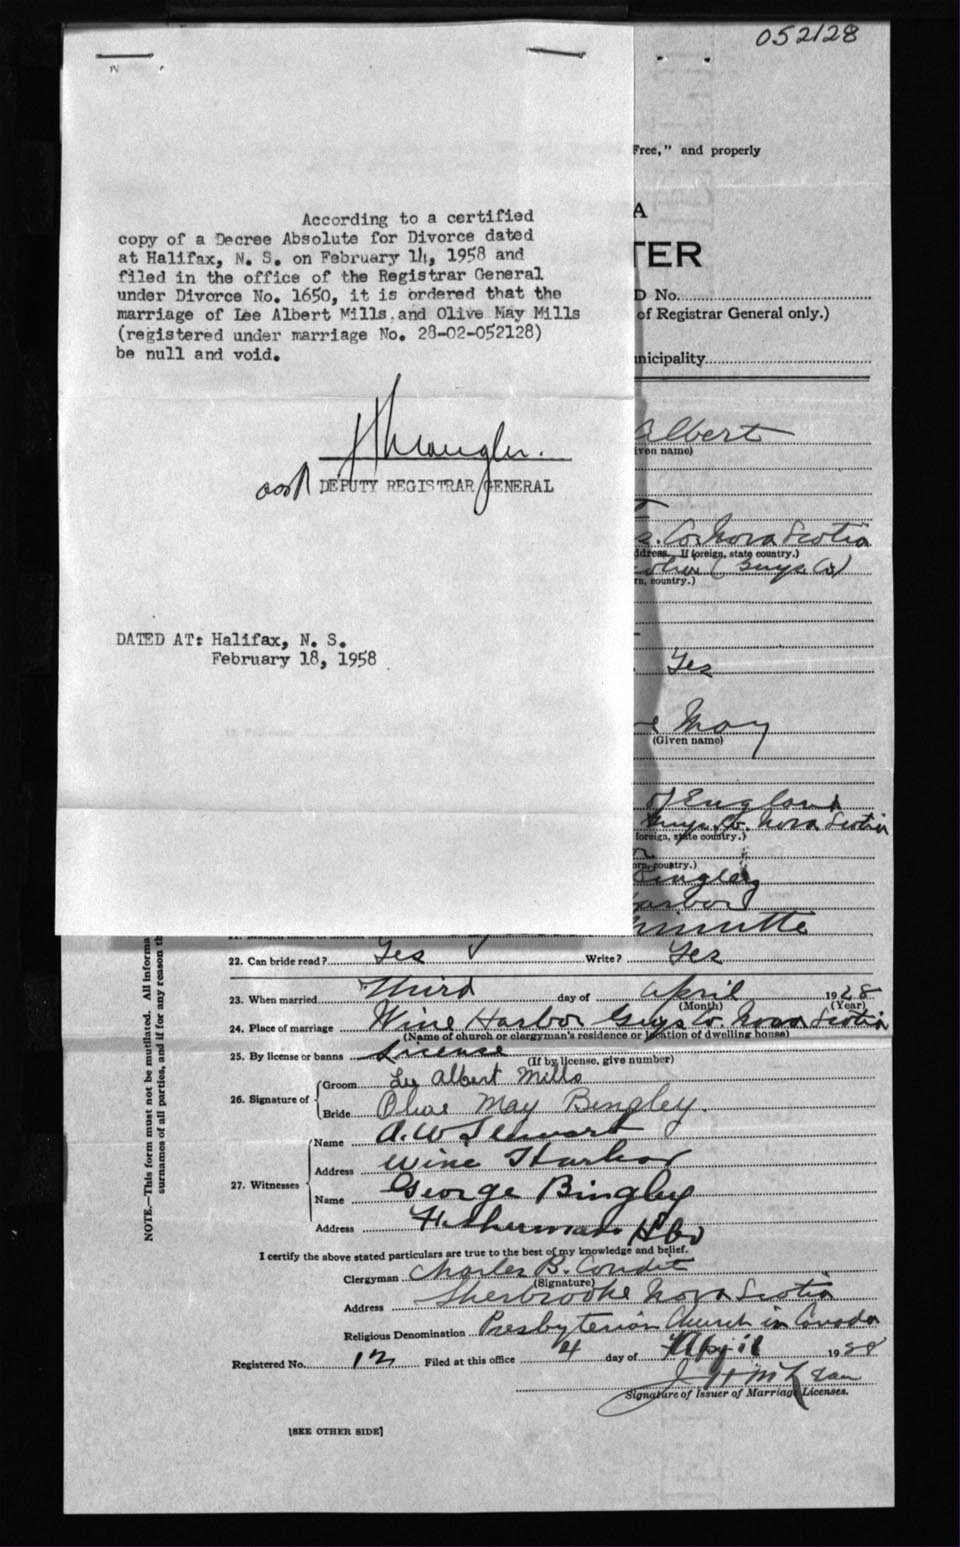 052128
According to a certified
copy of a Decree Absolute for Divorce dated
at Halifax, N. S. on February 14, 1958 and
filed in the office of the Registrar General
under Divorce No. 1650, it is ordered that the
marriage of Lee Albert Mills and Olive May Mills
(registered under marriage No. 28-02-052128)
be null and void.
DEPUTY REGISTRAR GENERAL
DATED AT: Halifax, N. S.
February 18, 1958
Free," and properly
A
TER
D No.
of Registrar General only.)
nicipality
Albert
ven name)
s. Co. Nova Scotia
ddress. If foreign, state country.)
(Guys Co)
rn, country.)
Yes
e May
(Given name)
of England
Guys. Co. Nova Scotia
foreign, state country.)
orn, country.)
Bingley
arbor
22. Can bride read? Yes Write? Yes
23. When married Third day of April 1928
(Month) (Year)
24. Place of marriage Wine Harbor Guys Co. Nova Scotia
(Name of church or clergyman's residence or location of dwelling house)
25. By license or banns License
(If by license, give number)
26. Signature of Groom Lee Albert Mills
Bride Olive May Bingley.
27. Witnesses Name A. W Stewart
Address Wine Harbor
Name George Bingley
Address
I certify the above stated particulars are true to the best of my knowledge and belief.
Clergyman Charles B. Condit
(Signature)
Address Sherbrooke Nova Scotia
Religious Denomination Presbyterian Church in Canada
Registered No. 12 Filed at this office 4 day of April 1928
Signature of Issuer of Marriage Licenses.
[SEE OTHER SIDE]
NOTE.—This form must not be mutilated. All informa
surnames of all parties, and if for any reason th